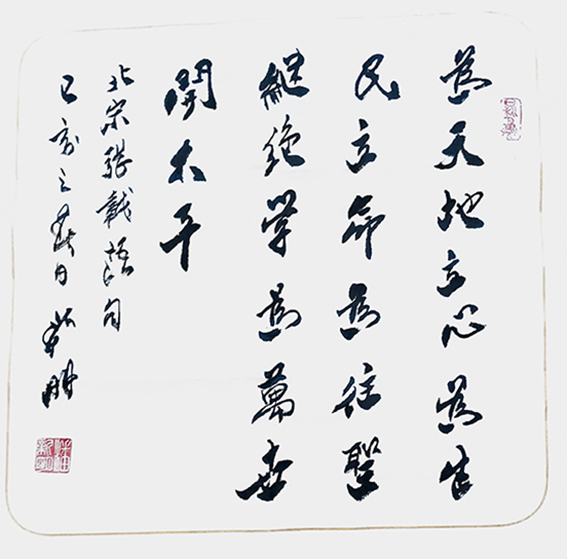 為天地立心為生
民立命為往聖
繼絕學為萬世
開太平
北宋張載語句
己亥之春月